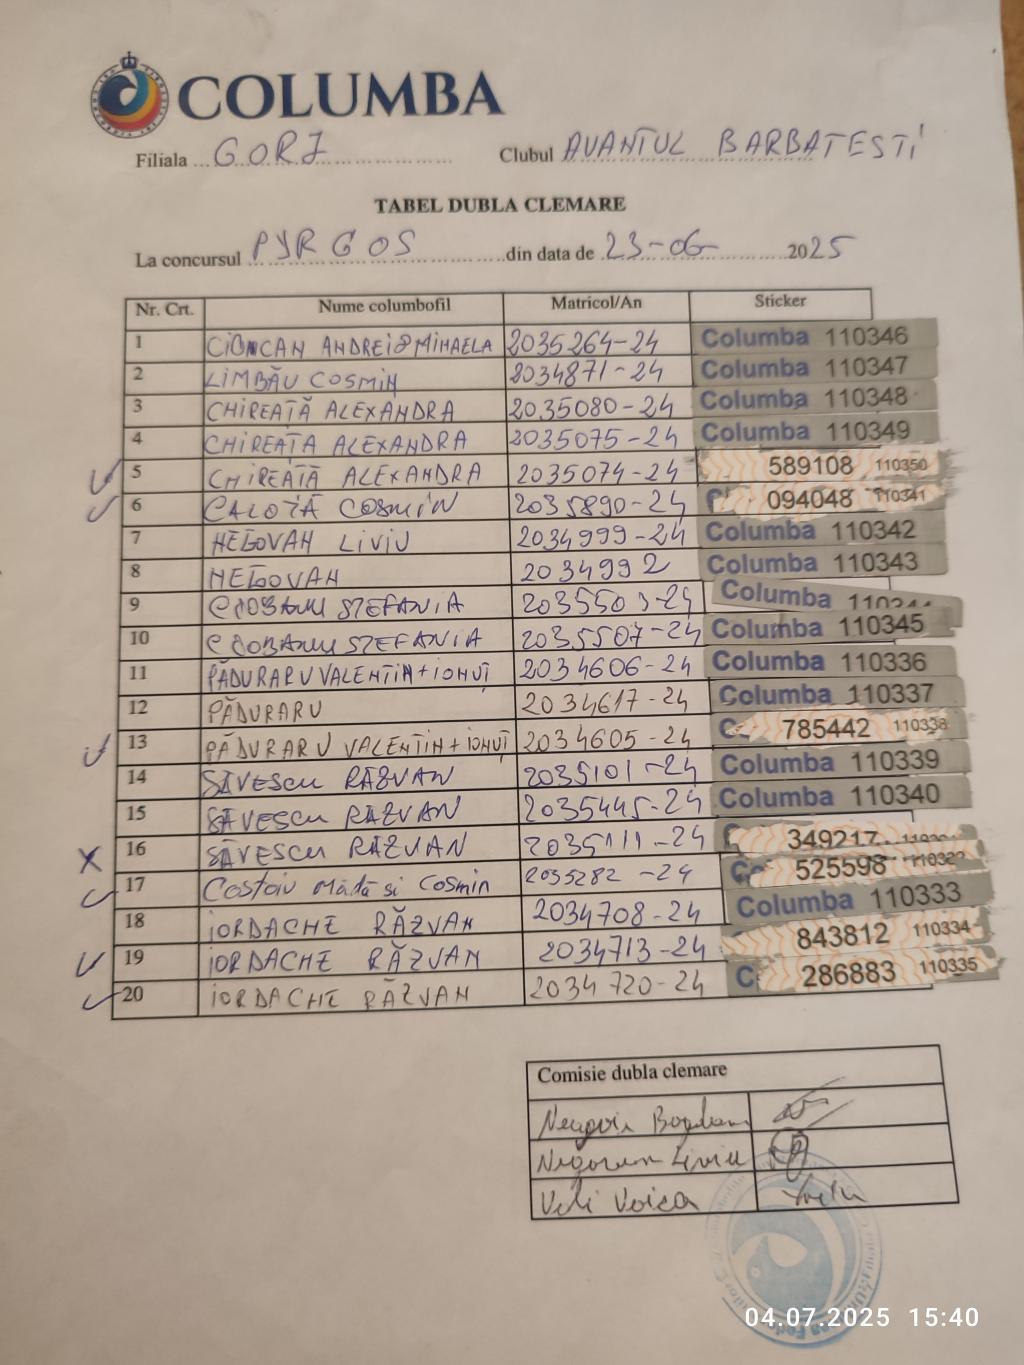 COLUMBA
Filiala ... GORJ ........................ Clubul AVANTUL BARBATESTI
TABEL DUBLA CLEMARE
La concursul PYRGOS ............ din data de 23-06- ............ 2025
Nr. Crt. Nume columbofil Matricol/An Sticker
1 CIONCAN ANDREI & MIHAELA 2035264-24 Columba 110346
2 LIMBĂU COSMIN 2034871-24 Columba 110347
3 CHIREAȚĂ ALEXANDRA 2035080-24 Columba 110348
4 CHIREAȚA ALEXANDRA 2035075-24 Columba 110349
5 CHIREAȚĂ ALEXANDRA 2035074-24 589108 110350
6 CALOTĂ COSMIN 2035890-24 094048 110341
7 NEGOVAN LIVIU 2034999-24 Columba 110342
8 NEGOVAN 2034992 Columba 110343
9 CIOBANU STEFANIA Columba
10 CIOBANU STEFANIA 2035507-24 Columba 110345
11 PĂDURARU VALENTIN+IONUȚ 2034606-24 Columba 110336
12 PĂDURARU 2034617-24 Columba 110337
13 PĂDURARU VALENTIN+IONUȚ 2034605-24 785442 110338
14 SĂVESCU RĂZVAN 2035101-24 Columba 110339
15 SĂVESCU RĂZVAN 2035445-24 Columba 110340
X 16 SĂVESCU RĂZVAN 2035111-24 349217
17 Costoiu Mădă si Cosmin 2035282-24 525598
18 IORDACHE RĂZVAN 2034708-24 Columba 110333
19 IORDACHE RĂZVAN 2034713-24 843812 110334
20 IORDACHE RĂZVAN 2034720-24 286883 110335
Comisie dubla clemare
Bogdan
Liviu
Voica
04.07.2025 15:40